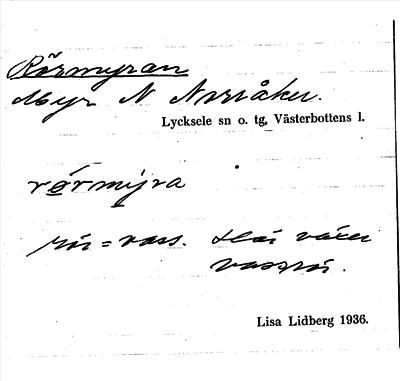 Rörmyran
Myr N Norråker.
Lycksele sn o. tg, Västerbottens l.
rörmyra
rör = vass. Här växer
vassrör.
Lisa Lidberg 1936.